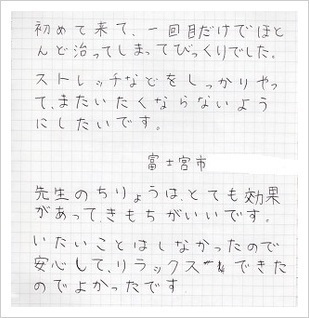 初めて来て、一回目だけでほと
んど治ってしまってびっくりでした。
ストレッチなどをしっかりやっ
て、またいたくならないよう
にしたいです。
富士宮市
先生のちりょうは、とても効果
があって、きもちがいいです。
いたいことはしなかったので
安心して、リラックス できた
のでよかったです